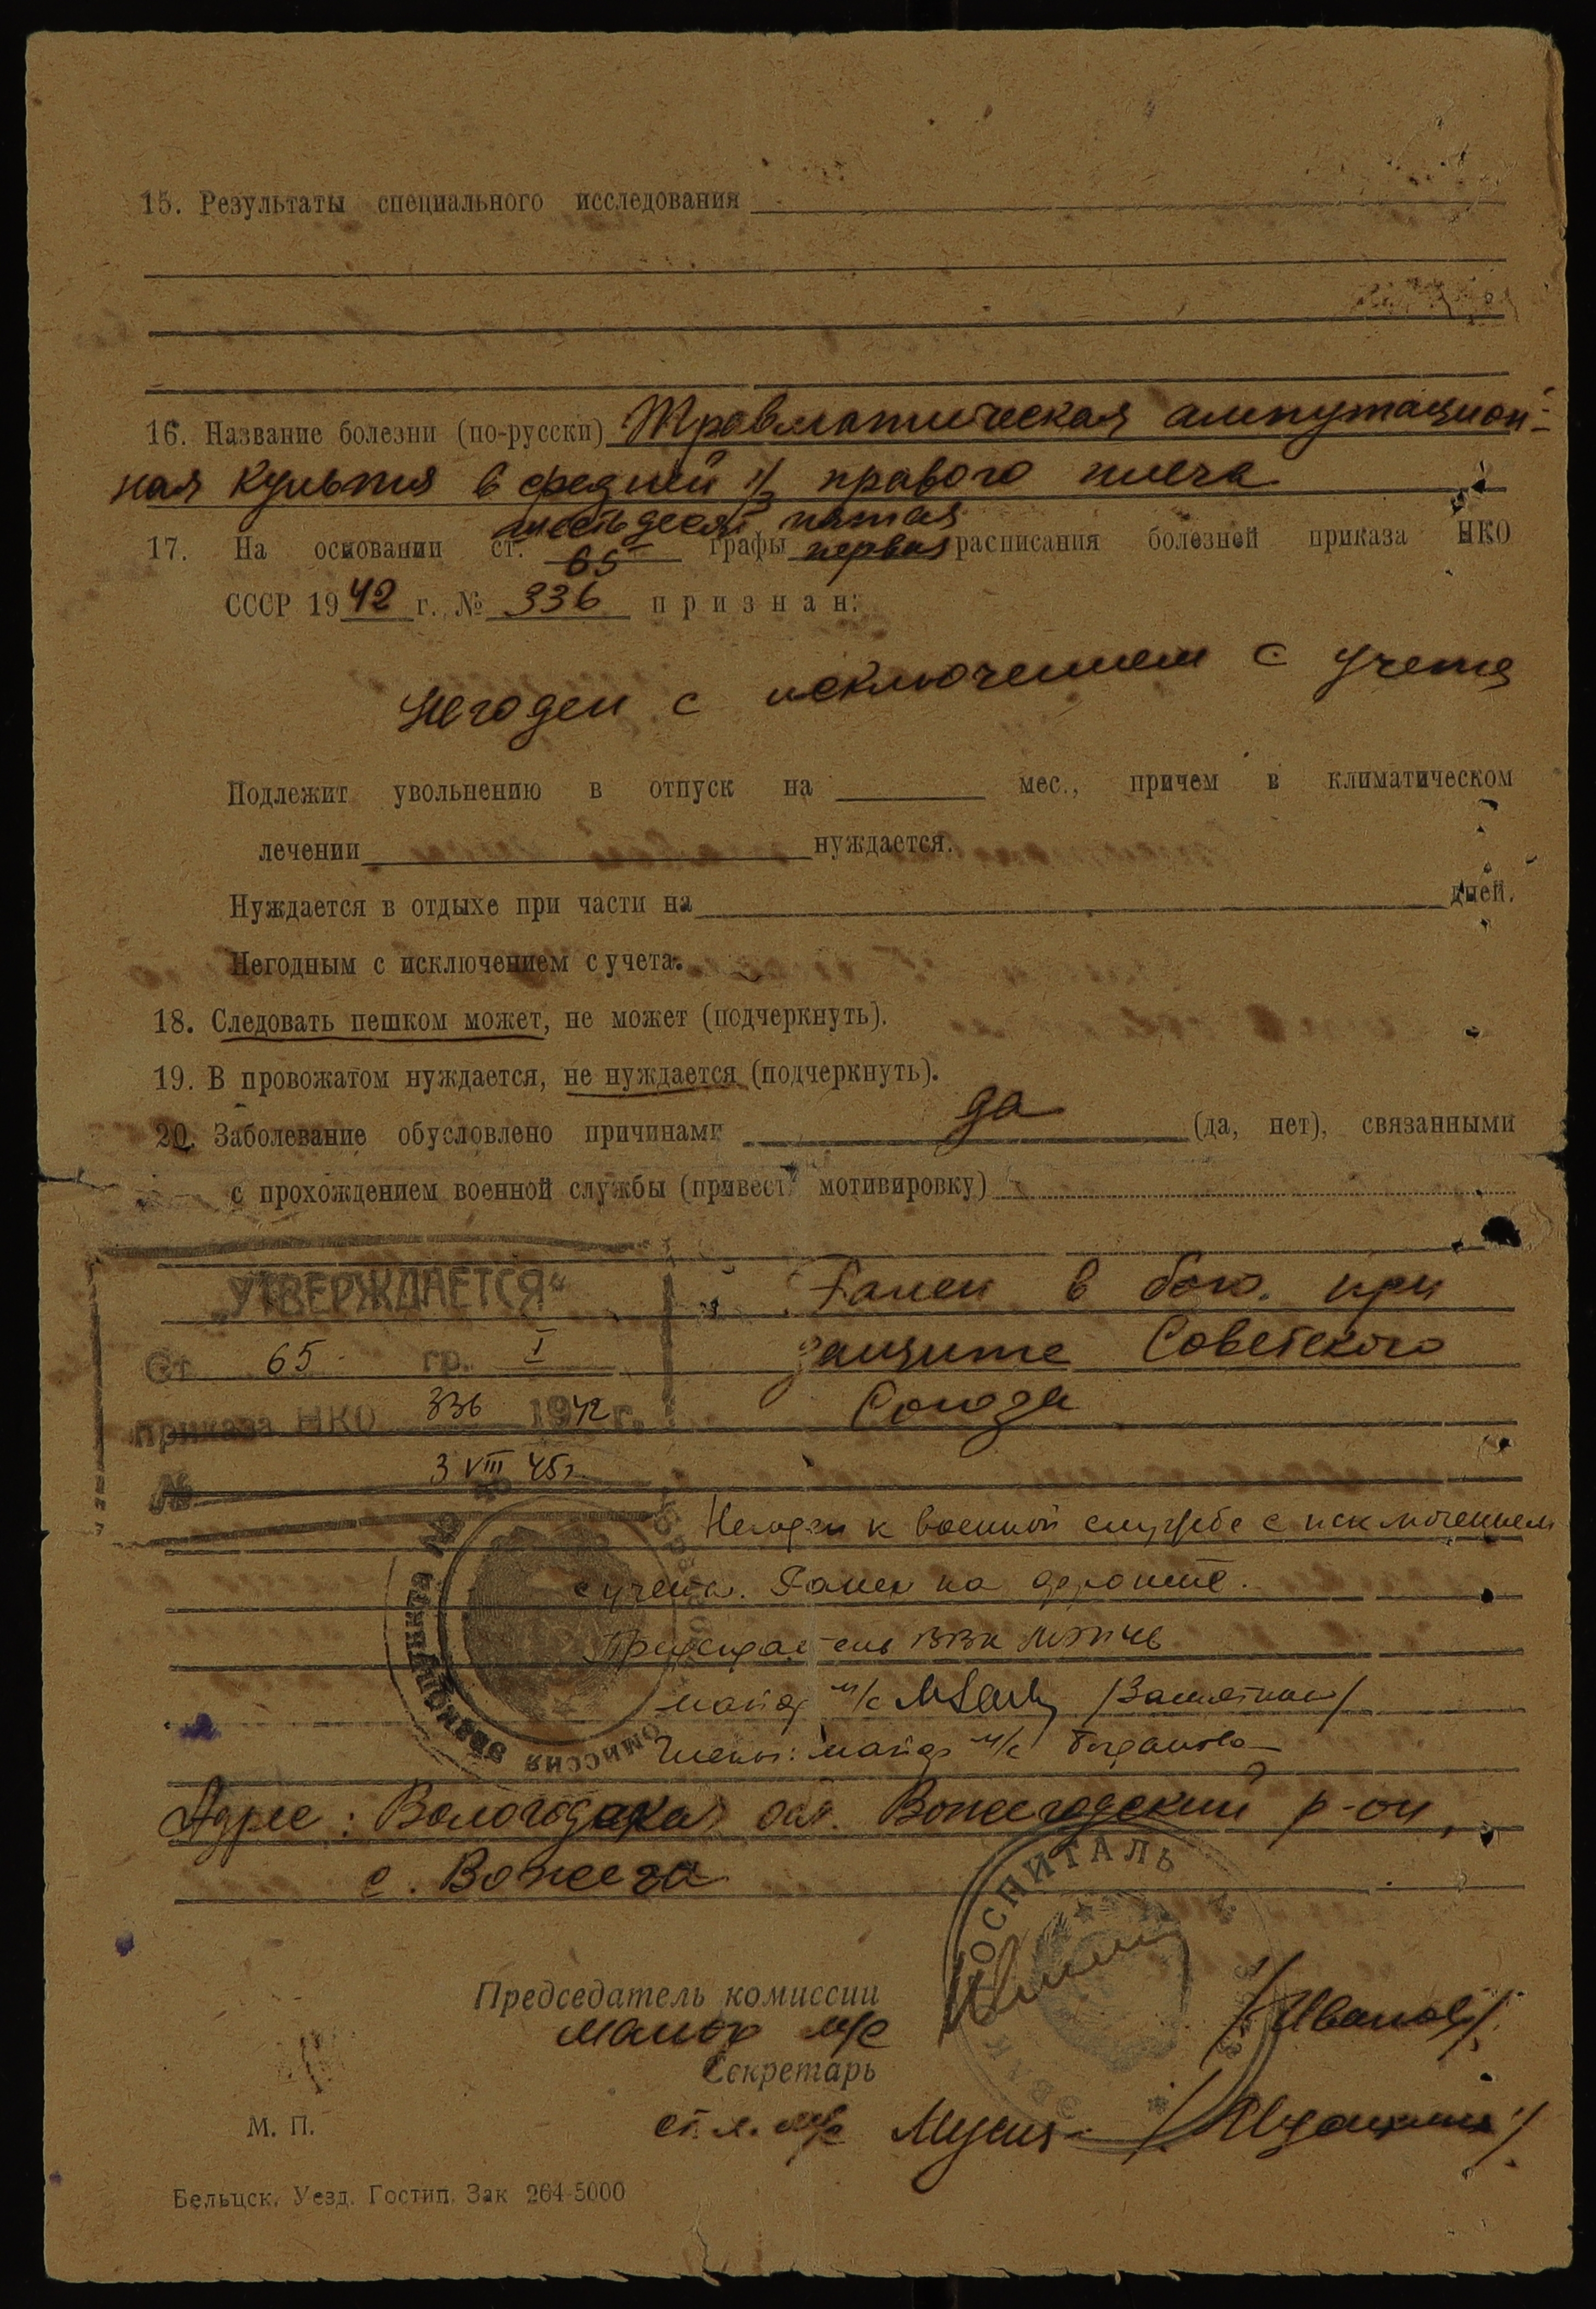 15. Результаты специального исследования
16. Название болезни (по-русски) Травматическая ампутацион-
ная культя в средней 1/3 правого плеча
шестьдесят пятая
17. На основании ст. 65 графы первая расписания болезней приказа НКО
СССР 1942 г. № 336 признан:
Негоден с исключением с учета
Подлежит увольнению в отпуск на мес., причем в климатическом
лечении нуждается.
Нуждается в отдыхе при части на дней.
Негодным с исключением с учета.
18. Следовать пешком может, не может (подчеркнуть).
19. В провожатом нуждается, не нуждается (подчеркнуть).
20. Заболевание обусловлено причинами да (да, нет), связанными
с прохождением военной службы (привест мотивировку)
„УТВЕРЖДАЕТСЯ“
Ранен в бою при
Ст 65 гр. I
защите Советского
приказа НКО 336 1942 г.
Союза
№ 3 VIII 45 г.
Негоден к военной службе с исключением
с учета. Ранен на фронте.
Председатель ВВК
майор м/с
Члены: майор м/с Богданова
Адрес: Вологодская обл. Вожегодский р-он,
с. Вожега
ГОСПИТАЛЬ
Председатель комиссии
майор м/с /Иванов/
Секретарь
М. П.
ст. л. м/с
Бельцск. Уезд. Гостип. Зак 264-5000